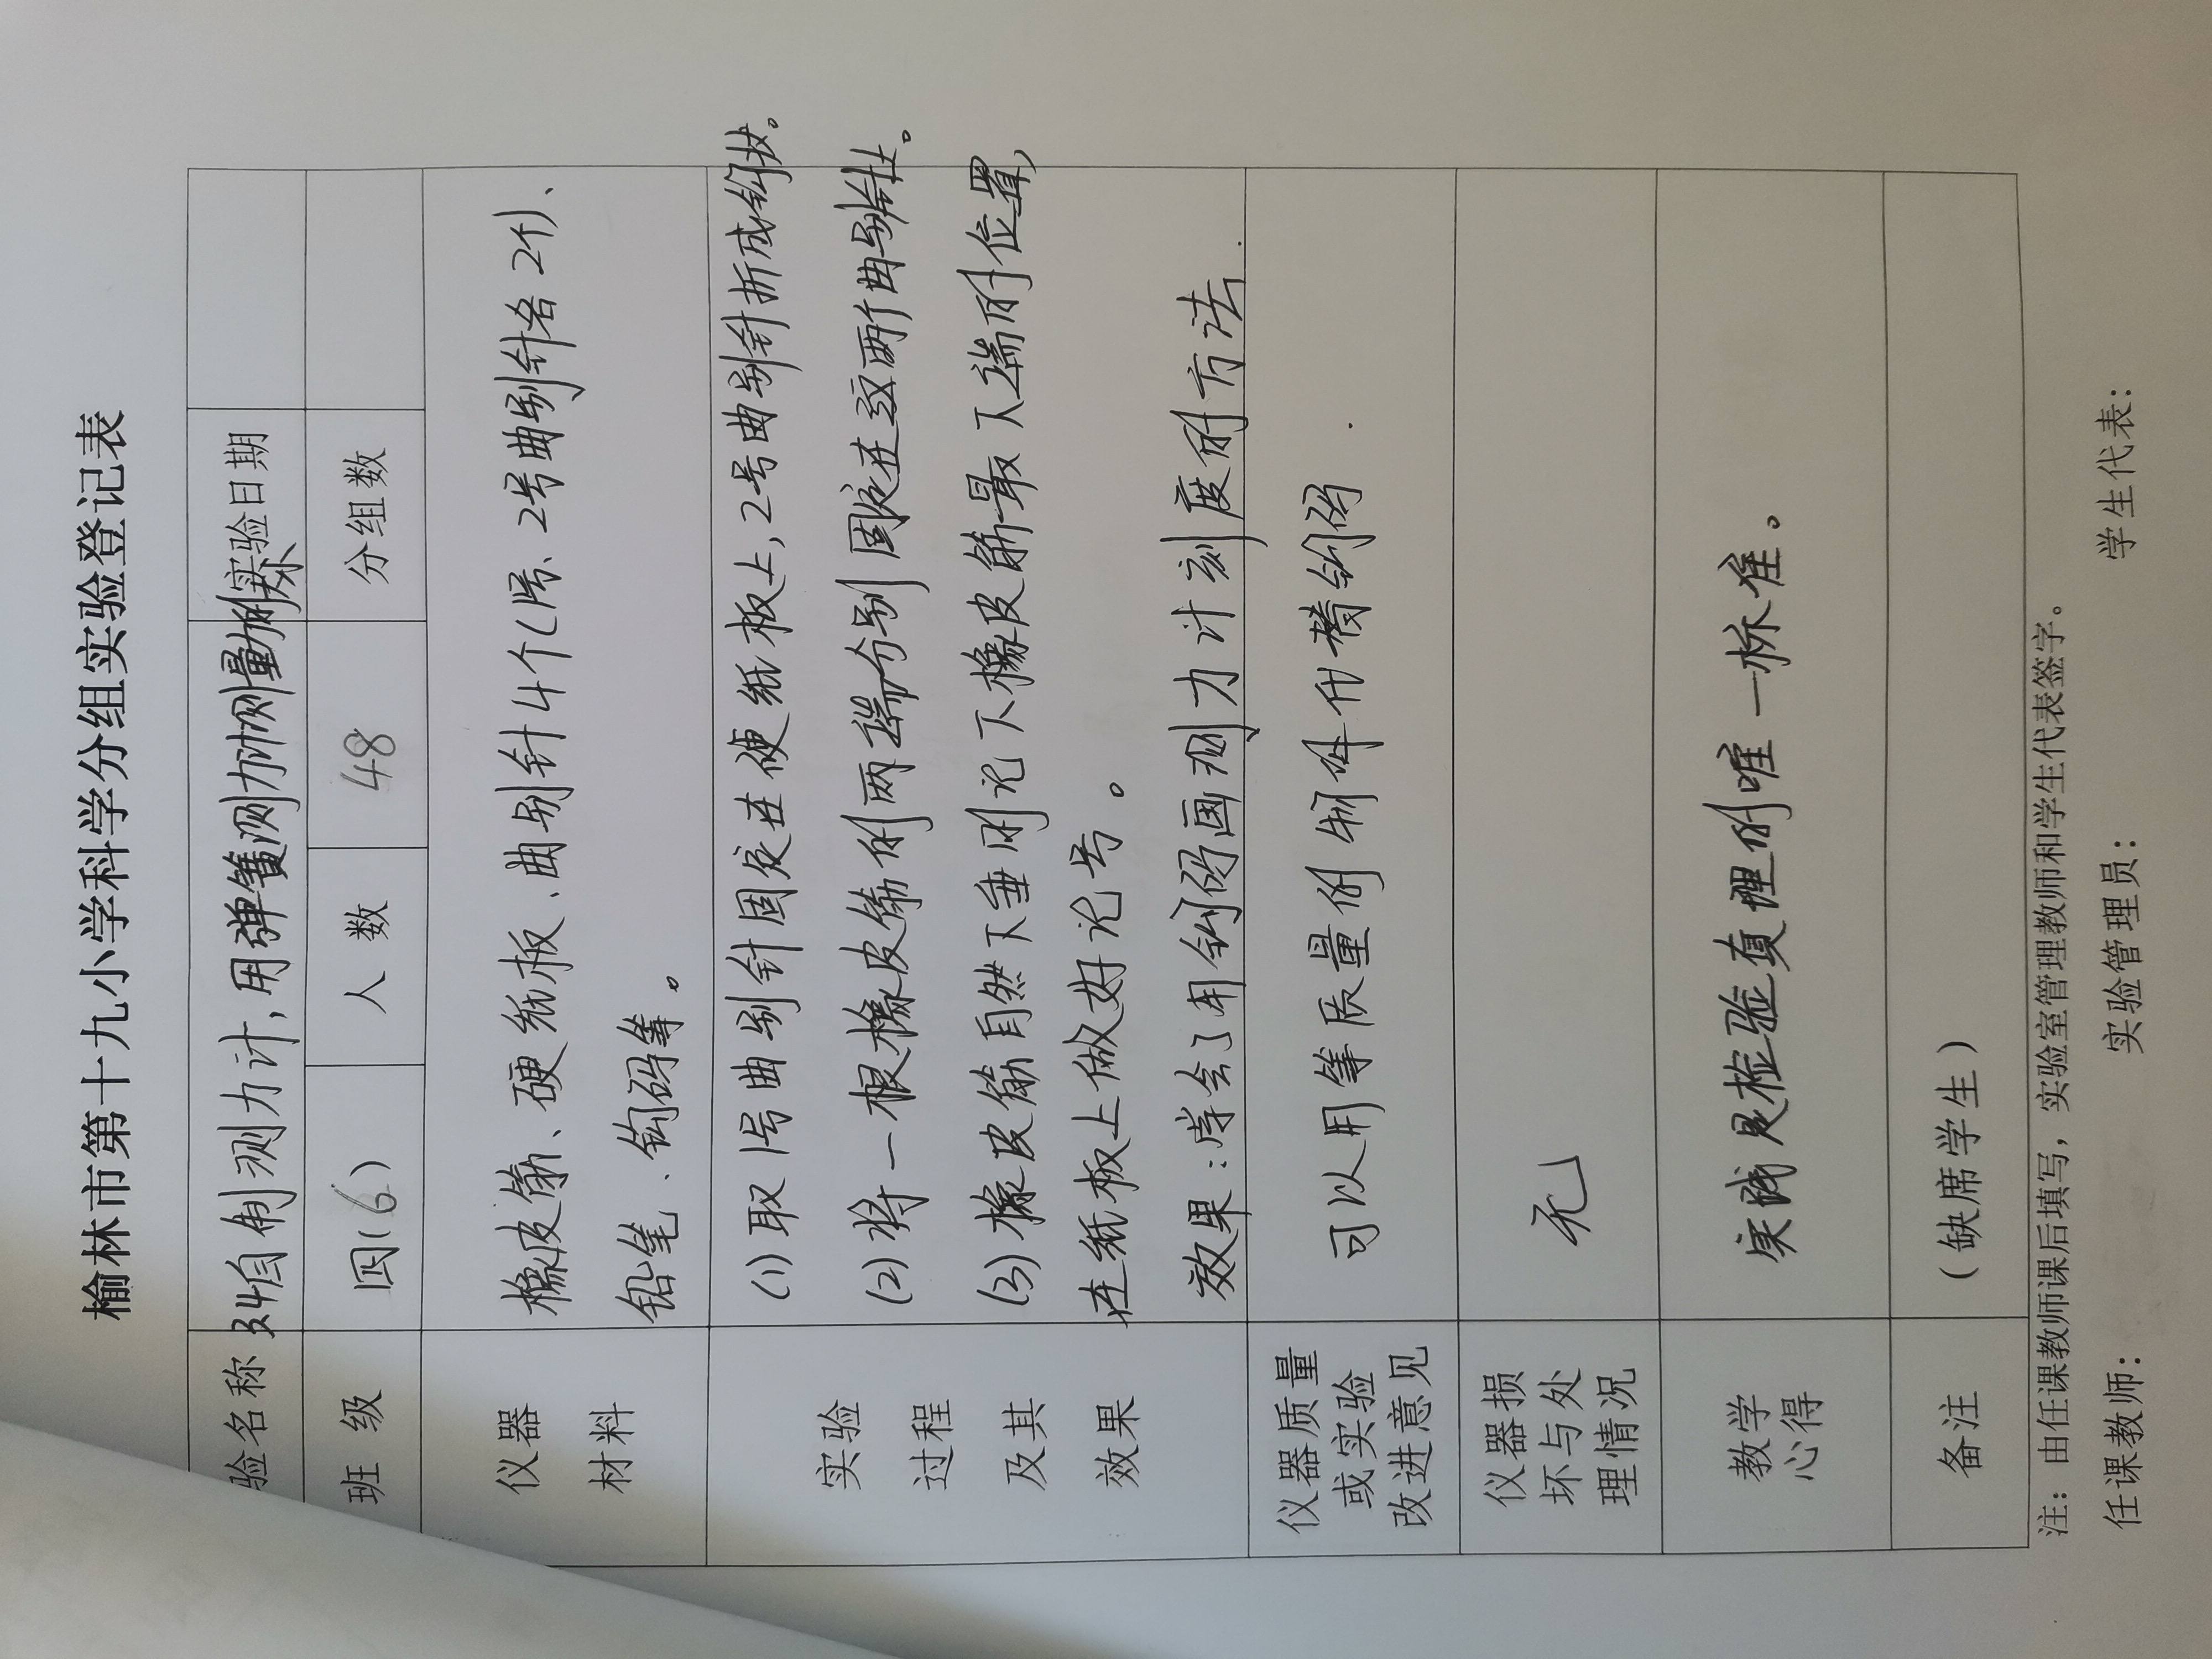 榆林市第十九小学科学分组实验登记表
验名称 34自制测力计,用弹簧测力计测量力的大小 实验日期
班 级 四(6) 人 数 48 分组数
仪器
材料
橡皮筋、硬纸板、曲别针4个(1号、2号曲别针各2个)、
铅笔、钩码等。
实验
过程
及其
效果
(1)取1号曲别针固定在硬纸板上,2号曲别针折成钩状。
(2)将一根橡皮筋的两端分别固定在这两个曲别针上。
(3)橡皮筋自然下垂时记下橡皮筋最下端的位置,
在纸板上做好记号。
效果:学会了用钩码画测力计刻度的方法
仪器质量
或实验
改进意见
可以用等质量的物体代替钩码.
仪器损
坏与处
理情况
无
教学
心得
实践是检验真理的唯一标准。
备注
(缺席学生)
注:由任课教师课后填写,实验室管理教师和学生代表签字。
任课教师: 实验管理员: 学生代表: